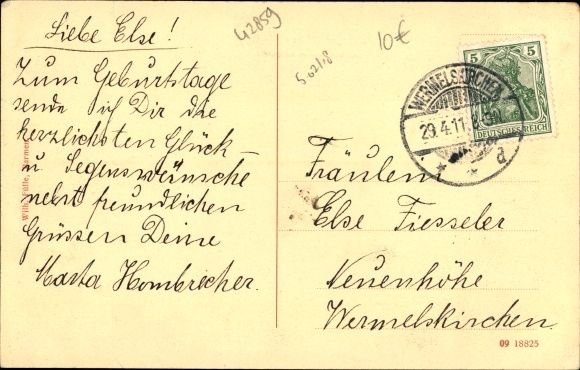 Liebe Else!
Zum Geburtstage
sende ich Dir die
herzlichsten Glück-
u. Segenswünsche
nebst freundlichen
Grüssen Deine
Marta Hombrecher.
42859
56218
10€
5 5
DEUTSCHES REICH
WERMELSKIRCHEN
29.4.11.
d
Fräulein
Else Fiesseler
Neuenhöhe
Wermelskirchen.
09 18825
Wilh. Fülle, Barmen